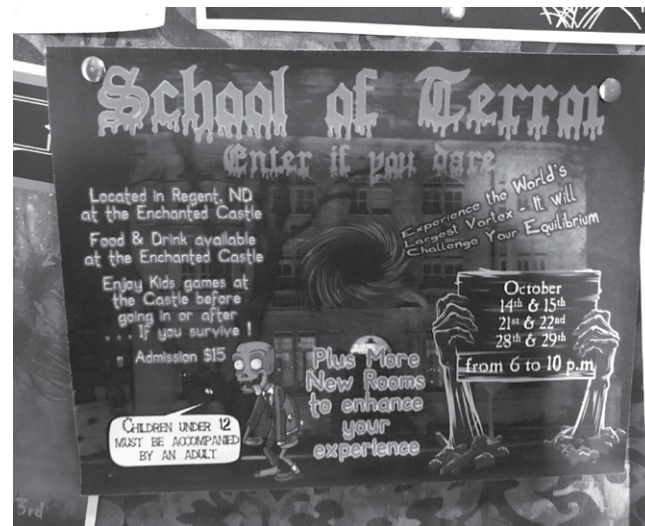 School of Terror
Enter if you dare
Located in Regent, ND
at the Enchanted Castle
Food & Drink available
at the Enchanted Castle
Enjoy Kids games at
the Castle before
going in or after
. . . If you survive !
Admission $15
CHILDREN UNDER 12
MUST BE ACCOMPANIED
BY AN ADULT
Experience the World's
Largest Vortex - It Will
Challenge Your Equilibrium
Plus More
New Rooms
to enhance
your
experience
October
14th & 15th
21st & 22nd
28th & 29th
from 6 to 10 p.m
3rd